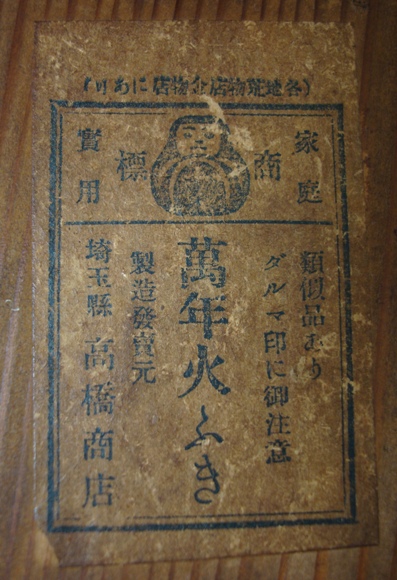 (各地荒物店金物店にあり)
家庭
商標
實用
類似品あり
ダルマ印に御注意
萬年火ふき
製造發賣元
埼玉縣 高橋商店